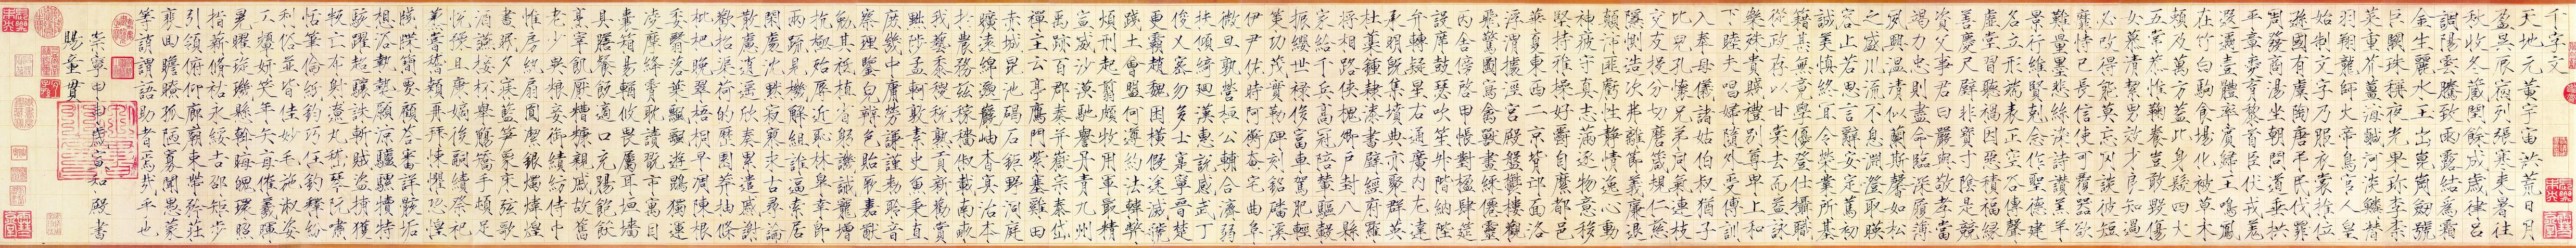 千字文
天地元黃宇宙洪荒日月
盈昃辰宿列張寒來暑往
秋收冬藏閏餘成歲律呂
調陽雲騰致雨露結爲霜
金生麗水玉出崑崗劍號
巨闕珠稱夜光果珍李柰
菜重芥薑海鹹河淡鱗潛
羽翔龍師火帝鳥官人皇
始制文字乃服衣裳推位
遜國有虞陶唐弔民伐罪
周發商湯坐朝問道垂拱
平章愛育黎首臣伏戎羌
遐邇壹體率賓歸王鳴鳳
在竹白駒食場化被草木
賴及萬方蓋此身髮四大
五常恭惟鞠養豈敢毀傷
女慕清潔男效才良知過
必改得能莫忘罔談彼短
靡恃己長信使可覆器欲
難量墨悲絲染詩讚羔羊
景行維賢剋念作聖德建
名立形端表正空谷傳聲
虛堂習聽禍因惡積福緣
善慶尺璧非寶寸陰是競
資父事君曰嚴與敬孝當
竭力忠則盡命臨深履薄
夙興溫凊似蘭斯馨如松
之盛川流不息淵澄取暎
容止若思言辭安定篤初
誠美慎終宜令榮業所基
籍甚無竟學優登仕攝職
從政存以甘棠去而益詠
樂殊貴賤禮別尊卑上和
下睦夫唱婦隨外受傅訓
入奉母儀諸姑伯叔猶子
比兒孔懷兄弟同氣連枝
交友投分切磨箴規仁慈
隱惻造次弗離節義廉退
顛沛匪虧性靜情逸心動
神疲守真志滿逐物意移
堅持雅操好爵自縻都邑
華夏東西二京背邙面洛
浮渭據涇宮殿盤鬱樓觀
飛驚圖寫禽獸畫綵僊靈
丙舍傍啓甲帳對楹肆筵
設席鼓瑟吹笙升階納陛
弁轉疑星右通廣內左達
承明既集墳典亦聚群英
杜藁鍾隸漆書壁經府羅
將相路俠槐卿戶封八縣
家給千兵高冠陪輦驅轂
振纓世祿侈富車駕肥輕
策功茂實勒碑刻銘磻溪
伊尹佐時阿衡奄宅曲阜
微旦孰營桓公輔合濟弱
扶傾綺廻漢惠說感武丁
俊乂密勿多士寔寧晉楚
更霸趙魏困橫假途滅虢
踐土會盟何遵約法韓弊
煩刑起翦頗牧用軍最精
宣威沙漠馳譽丹青九州
禹跡百郡秦并嶽宗泰岱
禪主云亭鴈門紫塞雞田
赤城昆池碣石鉅野洞庭
曠遠綿邈巖岫杳冥治本
於農務茲稼穡俶載南畝
我藝黍稷稅熟貢新勸賞
黜陟孟軻敦素史魚秉直
庶幾中庸勞謙謹敕聆音
察理鑒皃辯色貽厥嘉猷
勉其祗植省躬譏誡寵增
抗極殆辱近恥林皋幸即
兩疏見機解組誰逼索居
閑處沈默寂寥求古尋論
散慮逍遙欣奏累遣慼謝
歡招渠荷的歷園莽抽條
枇杷晚翠梧桐早凋陳根
委翳落葉飄颻遊鵾獨運
淩摩絳霄耽讀翫市寓目
囊箱易輶攸畏屬耳垣墻
具膳餐飯適口充腸飽飫
烹宰飢厭糟糠親戚故舊
老少異糧妾御績紡侍巾
帷房紈扇圓潔銀燭煒煌
晝眠夕寐藍笋象床弦歌
酒讌接杯舉觴矯手頓足
悅豫且康嫡後嗣續祭祀
蒸嘗稽顙再拜悚懼恐惶
牋牒簡要顧答審詳骸垢
想浴執熱願涼驢騾犢特
駭躍超驤誅斬賊盜捕獲
叛亡布射遼丸嵇琴阮嘯
恬筆倫紙鈞巧任釣釋紛
利俗竝皆佳妙毛施淑姿
工顰妍笑年矢每催羲暉
晃曜琁璣縣斡晦魄環照
指薪脩祜永綏吉邵矩步
引領俯仰廊廟束帶矜莊
裵回瞻眺孤陋寡聞愚蒙
等誚謂語助者焉哉乎也
崇寧甲申歲宣和殿書
賜童貫